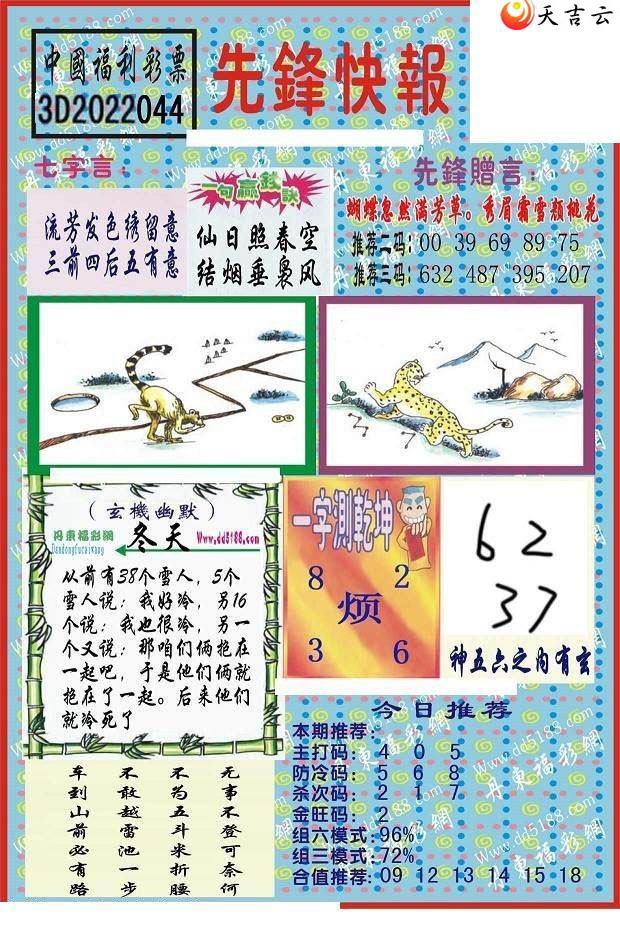 天吉云
中國福利彩票
3D2022044
先鋒快報
七字言：
流芳发色绣留意
三前四后五有意
一句赢錢訣
仙日照春空
结烟垂裊风
先鋒贈言：
蝴蝶忽然满芳草。秀眉霜雪颜桃花
推荐二码：00 39 69 89 75
推荐三码：632 487 395 207
（玄機幽默）
丹東福彩網
Dandongfucaiwang
冬天
Www.dd5188.com
从前有38个雪人，5个
雪人说：我好冷，另16
个说：我也很冷，另一
个又说：那咱们俩抱在
一起吧，于是他们俩就
抱在了一起。后来他们
就冷死了
一字測乾坤
8 2
烦
3 6
62
37
神五六之内有玄
无事不登可奈何
不为五斗米折腰
不敢越雷池一步
车到山前必有路
今日推荐
本期推荐：
主打码：4 0 5
防冷码：5 6 8
杀次码：2 1 7
金旺码：2
组六模式：96%
组三模式：72%
合值推荐：09 12 13 14 15 18